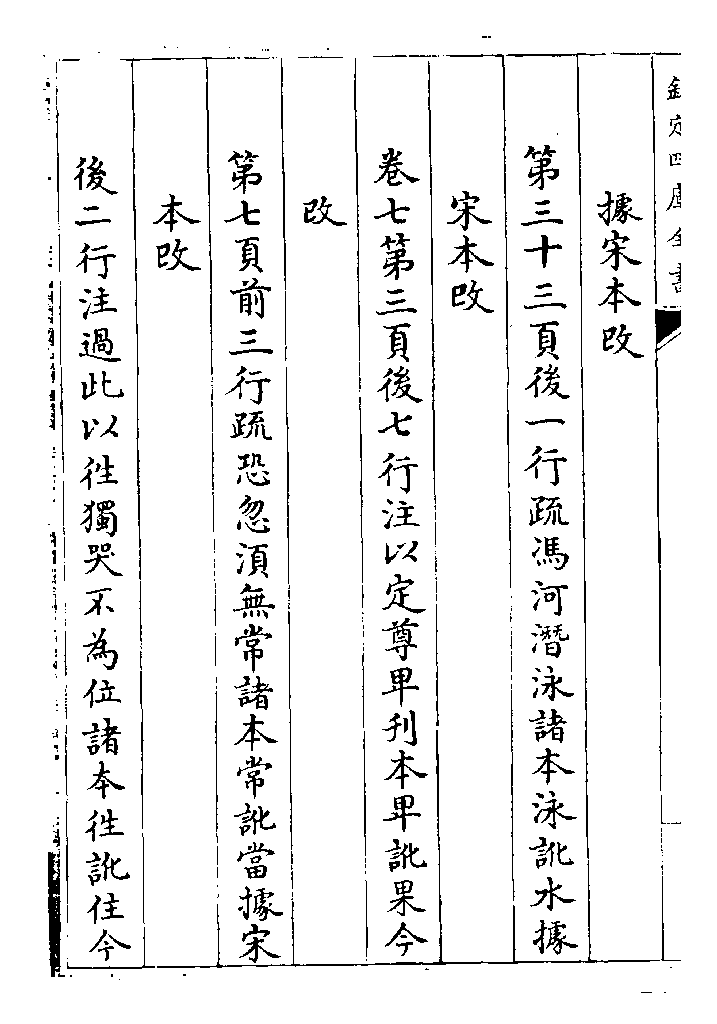 欽定四庫全書
據宋本改
第三十三頁後一行疏馮河潛泳諸本泳訛水據
宋本改
卷七第三頁後七行注以定尊卑刋本卑訛果今
改
第七頁前三行疏恐忽湏無常諸本常訛當據宋
本改
後二行注過此以徃獨哭不為位諸本徃訛住今